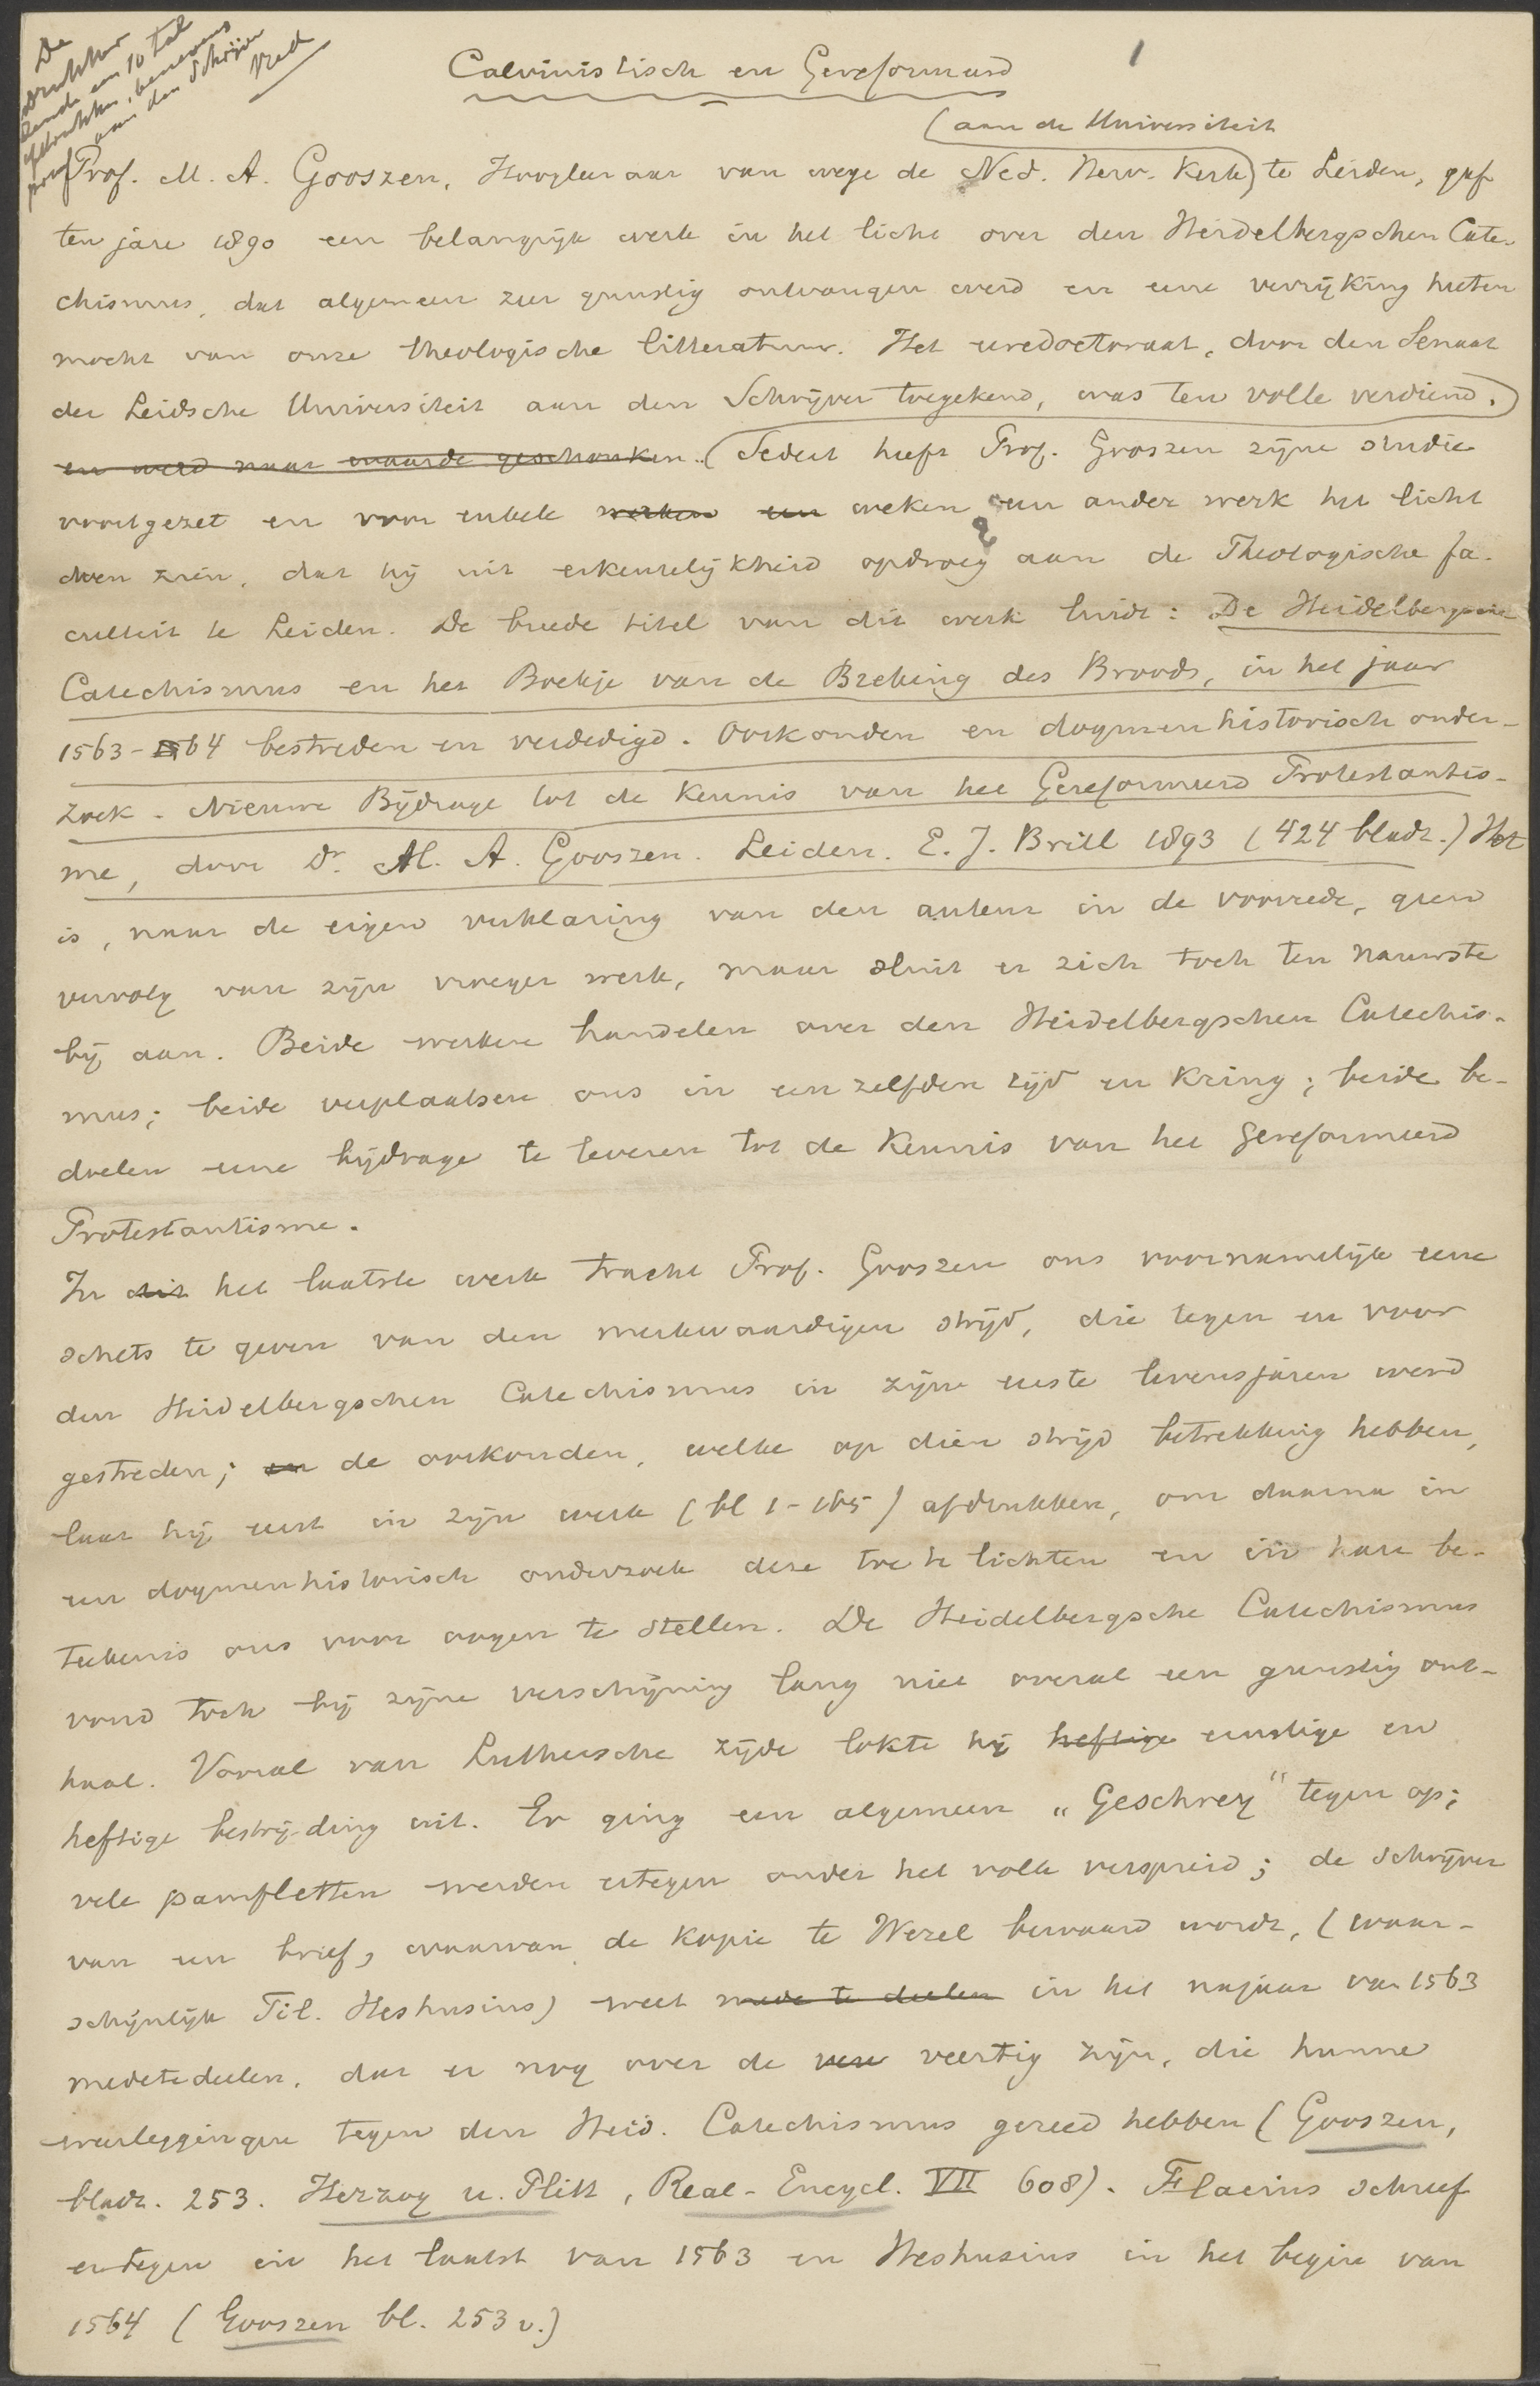 De
drukker
zende een 10 tal
afdrukken, benevens
proef aan den Schrijver
Red
1
Calvinistisch en Gereformeerd
(aan de Universiteit
Prof. M. A. Gooszen, Hoogleeraar van wege de Ned. Herv. Kerk) te Leiden, gaf
ten jare 1890 een belangrijk werk in het licht over den Heidelbergschen Cate-
chismus, dat algemeen zeer gunstig ontvangen werd en eene verrijking heeten
mocht van onze theologische litteratuur. Het eeredoctoraat, door den Senaat
der Leidsche Universiteit aan den Schrijver toegekend, was ten volle verdiend.)
en werd naar waarde geschonken. (Sedert heeft Prof. Gooszen zijne studie
voortgezet en voor enkele werken een weken een ander werk het licht
doen zien, dat hij uit erkentelijkheid opdroeg aan de Theologische Fa-
culteit te Leiden. De breede titel van dit werk luidt: De Heidelbergsche
Catechismus en het Boekje van de Breking des Broods, in het jaar
1563-1564 bestreden en verdedigd. Oorkonden en dogmenhistorisch onder-
zoek. Nieuwe Bijdrage tot de kennis van het Gereformeerd Protestantis-
me, door Dr. M. A. Gooszen. Leiden. E. J. Brill 1893 (424 bladz.) Het
is, naar de eigen verklaring van den auteur in de voorrede, geen
vervolg van zijn vroeger werk, maar sluit er zich toch ten nauwste
bij aan. Beide werken handelen over den Heidelbergschen Catechis-
mus; beide verplaatsen ons in een zelfden tijd en kring; beide be-
doelen eene bijdrage te leveren tot de kennis van het Gereformeerd
Protestantisme.
In dit het laatste werk tracht Prof. Gooszen ons voornamelijk eene
schets te geven van den merkwaardigen strijd, die tegen en voor
den Heidelbergschen Catechismus in zijne eerste levensjaren werd
gestreden; en de oorkonden, welke op dien strijd betrekking hebben,
laat hij eerst in zijn werk (bl 1-165) afdrukken, om daarna in
een dogmenhistorisch onderzoek deze toe te lichten en in hare be-
teekenis ons voor oogen te stellen. De Heidelbergsche Catechismus
vond toch bij zijne verschijning lang niet overal een gunstig ont-
haal. Vooral van Luthersche zijde lokte hij heftige ernstige en
heftige bestrijding uit. Er ging een algemeen „Geschrey" tegen op;
vele pamfletten werden ertegen onder het volk verspreid; de schrijver
van een brief, waarvan de kopie te Wezel bewaard wordt, (waar-
schijnlijk Til. Heshusius) weet mede te deelen in het najaar van 1563
medetedeelen, dat er nog over de veertig zijn, die hunne
weerleggingen tegen den Heid. Catechismus gereed hebben (Gooszen,
bladz. 253. Herzog u. Plitt, Real-Encycl. VII 608). Flacius schreef
ertegen in het laatst van 1563 en Heshusius in het begin van
1564 (Gooszen bl. 253 v.)